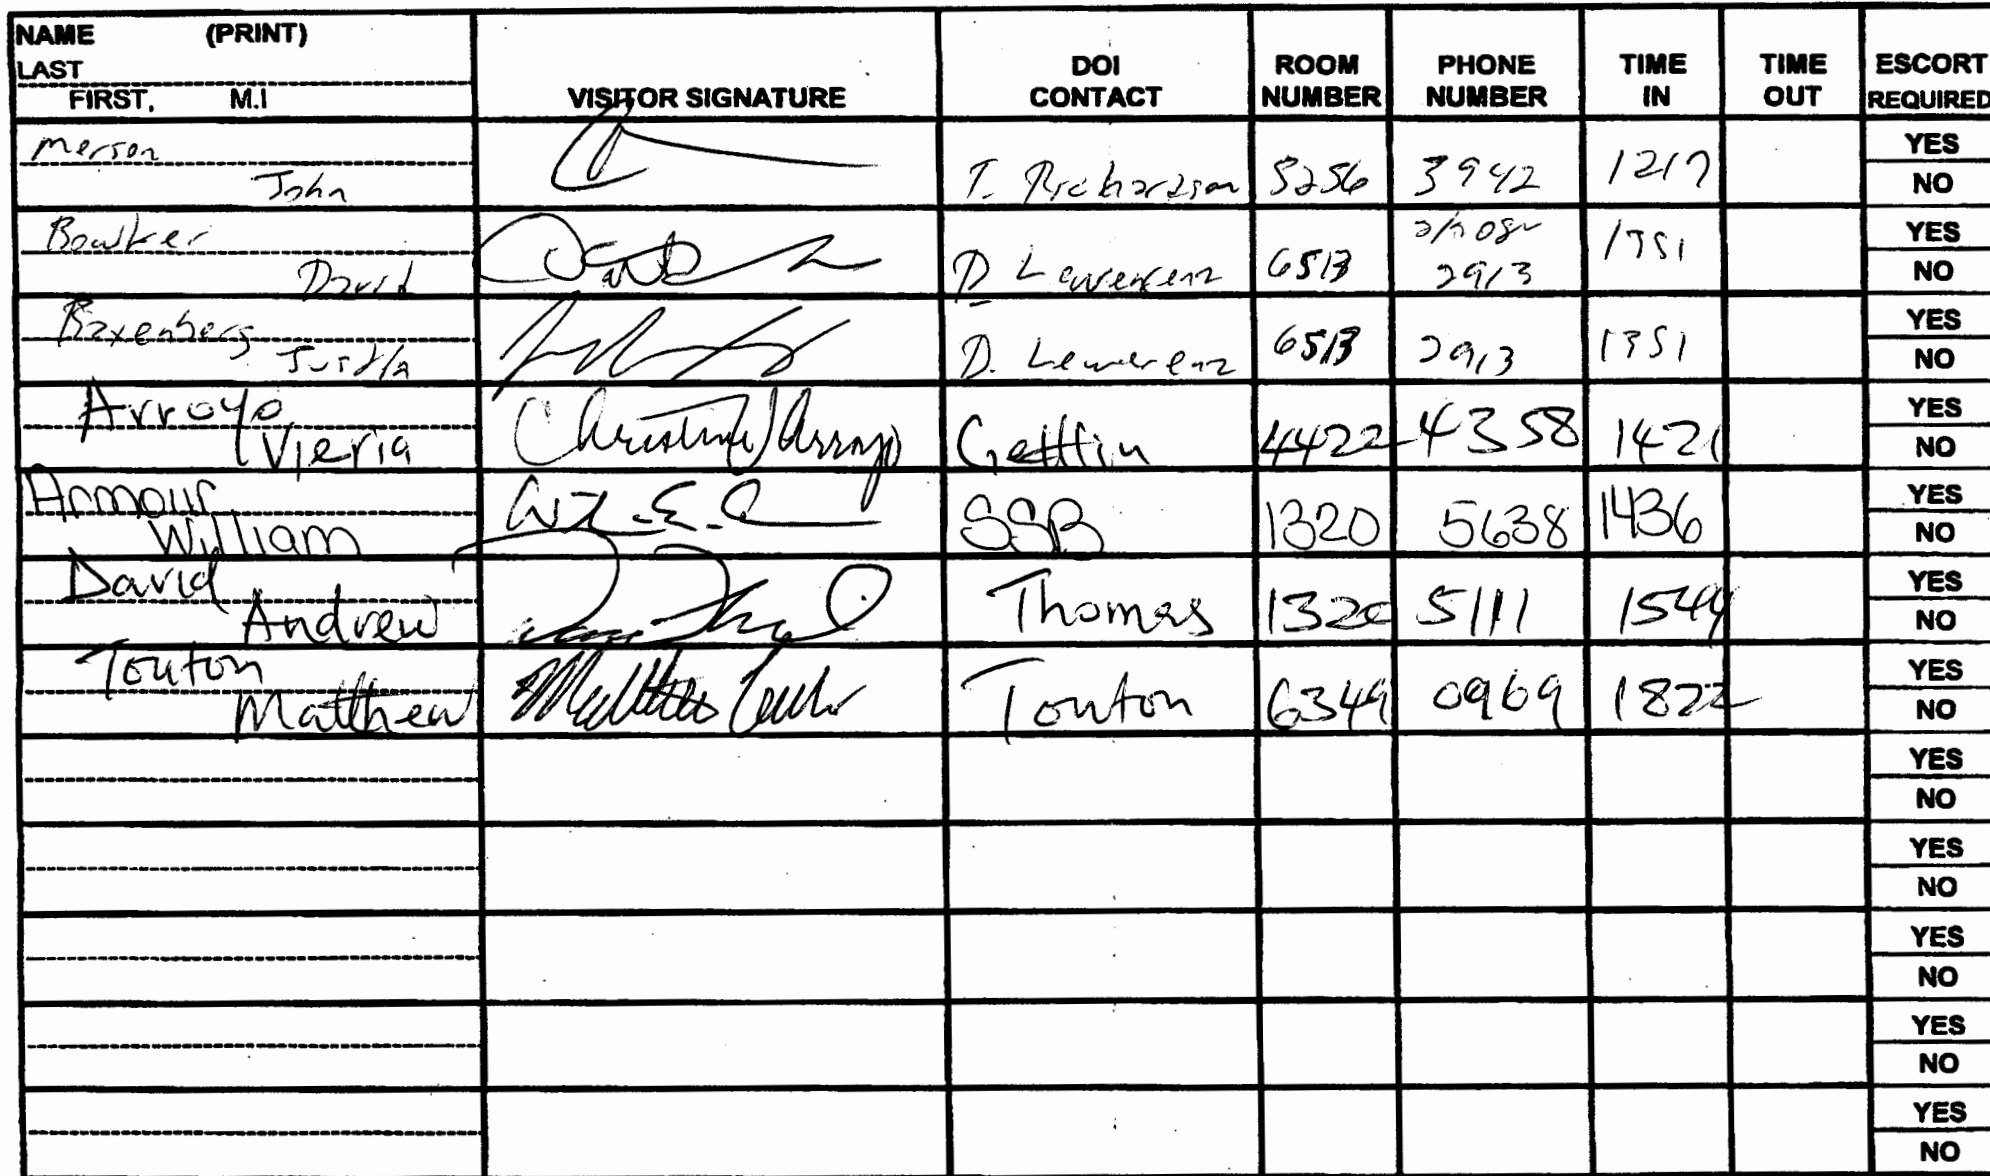 NAME (PRINT)
LAST
FIRST, M.I
VISITOR SIGNATURE
DOI CONTACT
ROOM NUMBER
PHONE NUMBER
TIME IN
TIME OUT
ESCORT REQUIRED
Merson
John
T. Richardson 5256 3942 1217
YES
NO
Bowker
David
D 6513 2913 1351
YES
NO
Justin
D. 6513 2913 1351
YES
NO
Arroyo
Vieria
Christine Arroyo 4422 4358 1421
YES
NO
Armour
William
SSB 1320 5638 1436
YES
NO
David
Andrew
Thomas 1320 5111 1544
YES
NO
Touton
Matthew
Matthew Touton 6349 0969 1822
YES
NO
YES
NO
YES
NO
YES
NO
YES
NO
YES
NO